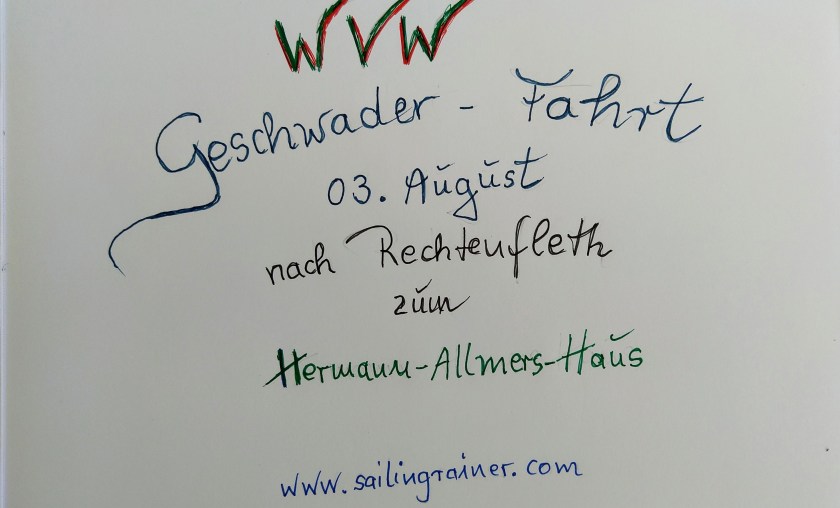 WVW
Geschwader - Fahrt
03. August
nach Rechtenfleth
zum
Hermann-Allmers-Haus
www.sailingrainer.com